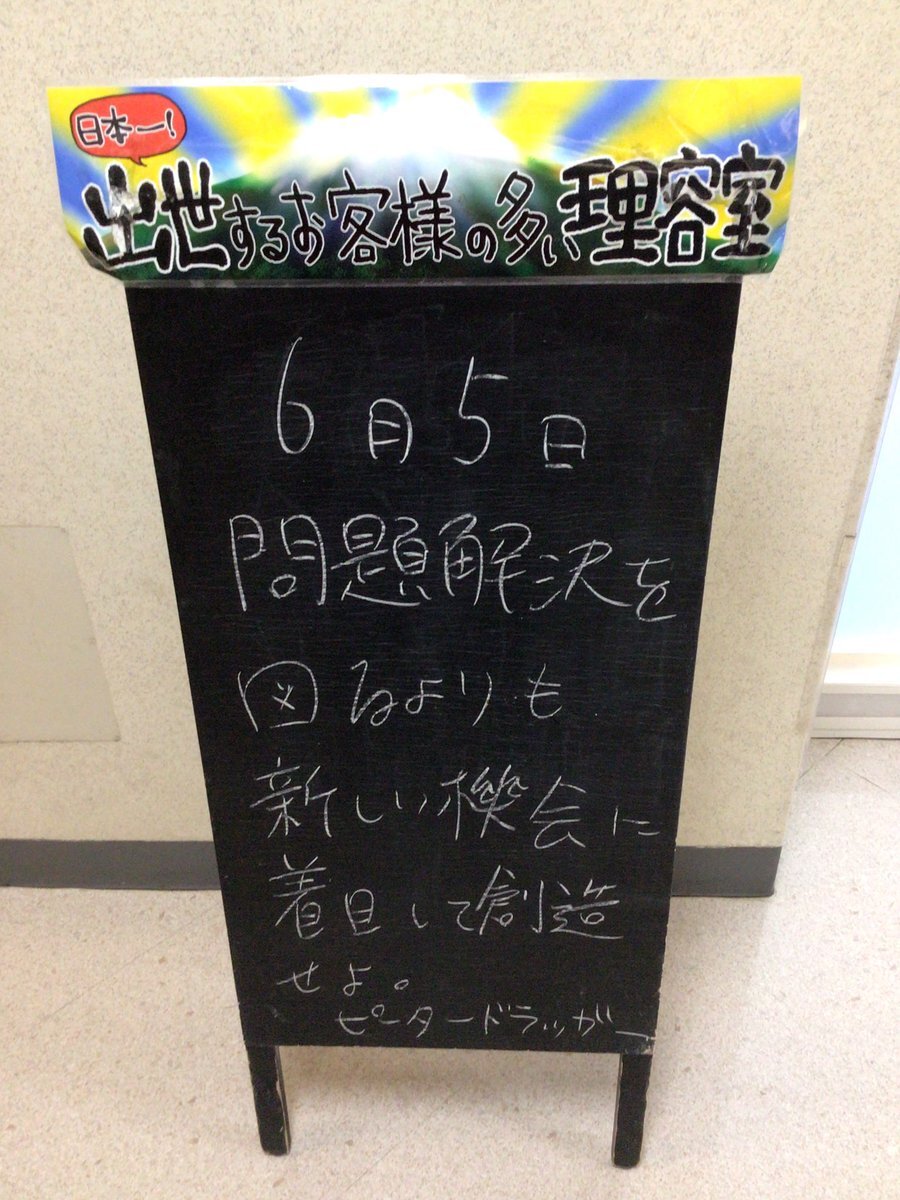 日本一!
出世するお客様の多い理容室
6月5日
問題解決を
図るよりも
新しい機会に
着目して創造
せよ。
ピータードラッガー